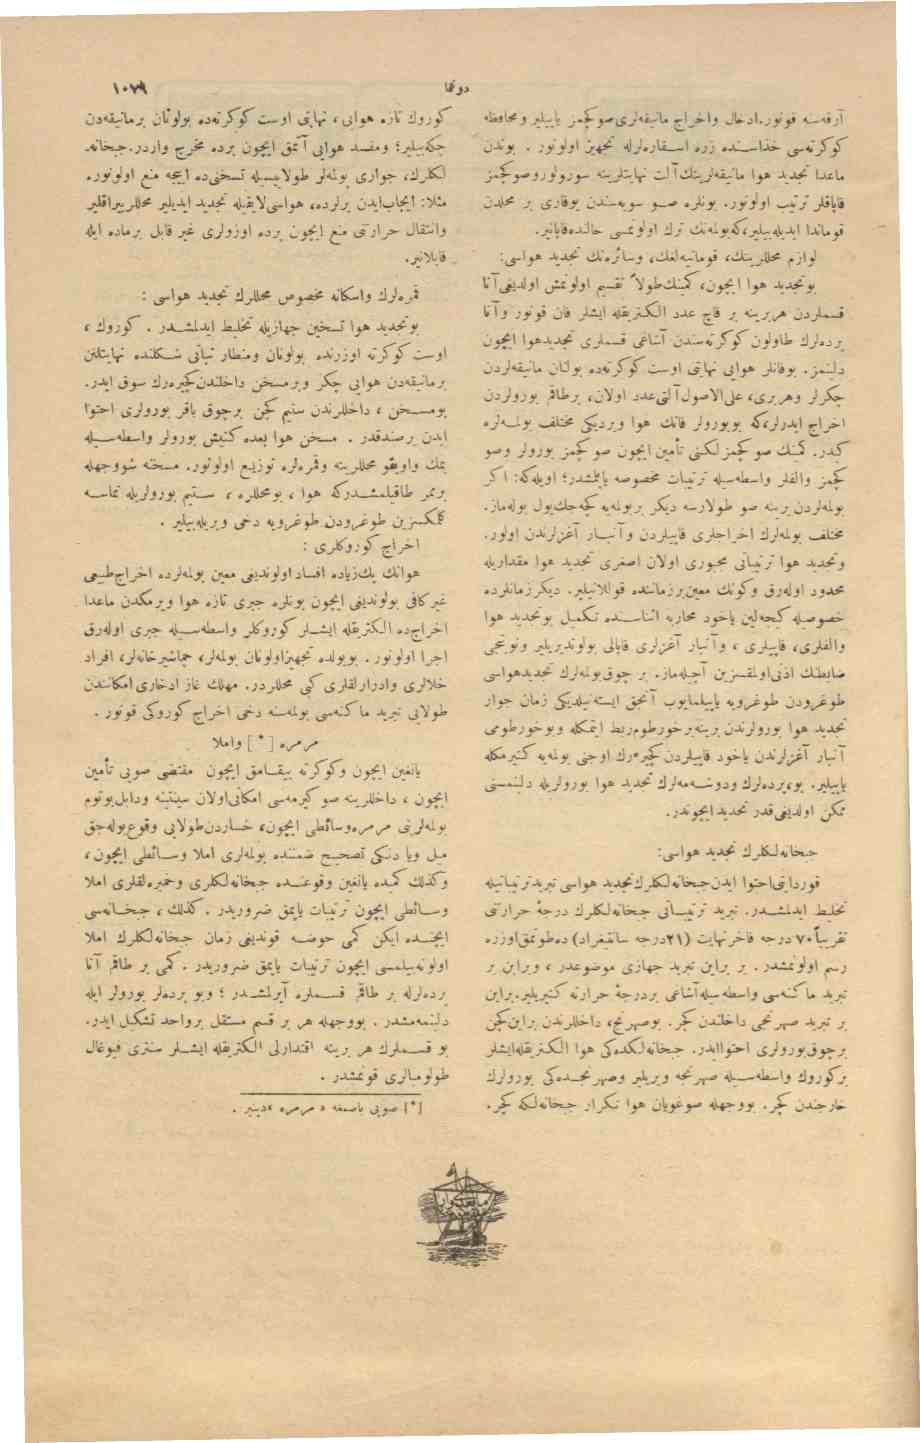 دونما
١٠٧٩
آرقه‌سنه قونور. ادخال واخراج مانیقه‌لری صو کچمز یاپیلیر ومحافظه
کوکرته‌سی حذاسنده زره اسقاره‌لرله تجهیز اولونور . بوندن
ماعدا تجدید هوا مانیقه‌لرینك آلت نهایتلرینه سورولور وصوکچمز
قاپاقلر ترتیب اولونور. بونلره صو سویه‌سندن یوقاری بر محلدن
قوماندا ایدیله‌بیلیر، که بولمه‌نك ترك اولونمسی حالنده قاپانیر.
لوازم محللرینك، قومانیه‌لغك، وسائره‌نك تجدید هواسی:
بوتجدید هوا ایچون، کمینك طولاً تقسیم اولونمش اولدیغی آنا
قسملردن هربرینه بر قاچ عدد الکتریقله ایشلر فان قونور وآنا
پرده‌لرك طاولون کوکرته‌سندن آشاغی قسملری تجدیدهوا ایچون
دلینمز. بوفانلر هوایی نهایتی اوست کوکرته‌ده بولنان مانیقه‌لردن
چکرلر وهربری، علی‌الاصول آلتی عدد اولان، برطاقم بورولردن
اخراج ایدرلر، که بوبورولر فانك هوا ویردیکی مختلف بولمه‌لره
کیدر. کمینك صو کچمز لکنی تأمین ایچون صو کچمز بورولر وصو
کچمز والفلر واسطه‌سیله ترتیبات مخصوصه یاپلمشدر؛ اویله‌که: اکر
بولمه‌لردن برینه صو طولارسه دیکر بربولمه‌یه کچه‌جك یول بوله‌ماز.
مختلف بولمه‌لرك اخراجلری قاپیلردن وآنبار آغزلرندن اولور.
وتجدید هوا ترتیباتی مجبوری اولان اصغری تجدید هوا مقداریله
محدود اوله‌رق وکونك معین برزماننده قوللانیلیر. دیکرزمانلرده
خصوصیله کیجه‌لین یاخود محاربه اثناسنده تکمیل بوتجدید هوا
والفلری، قاپیلری ، وآنبار آغزلری قاپالی بولوندیریلیر ونوبتجی
ضابطك اذنی اولمقسزین آچیله‌ماز. بر چوق بولمه‌لرك تجدیدهواسی
طوغرودن طوغرویه یاپیلمایوب آنجق ایسته‌نیلدیکی زمان جوار
تجدید هوا بورولرندن برینه برخورطوم ربط ایتمکله وبوخورطومی
آنبار آغزلرندن یاخود قاپیلردن کچیره‌رك اوجنی بولمه‌یه کتیرمکله
یاپیلیر. بو، پرده‌لرك ودوشه‌مه‌لرك تجدید هوا بورولریله دلنمسنی
ممکن اولدیغی قدر تحدید ایچوندر.
جبخانه‌لکلرك تجدید هواسی:
قوردایتی احتوا ایدن جبخانه‌لکلرك تجدید هواسی تبریدترتیباتیله
تخلیط ایدلمشدر. تبرید ترتیباتی جبخانه‌لکلرك درجهٔ حرارتنی
تقریباً ٧٠ درجه فاخرنهایت (٢١ درجه سانتیغراد) ده طوتمق اوزره
رسم اولونمشدر. بر براین تبرید جهازی موضوعدر ، وبراین بر
تبرید ماکنه‌سی واسطه‌سیله آشاغی بردرجهٔ حرارته کتیریلیر. براین
بر تبرید صهرنجی داخلندن کچر. بوصهرنج، داخللرندن براین کچن
برچوق بورولری احتوا ایدر. جبخانه‌لکده‌کی هوا الکتریقله ایشلر
برکوروك واسطه‌سیله صهرنجه ویریلیر وصهرنجده‌کی بورولرك
خارجندن کچر. بووجهله صوغویان هوا تکرار جبخانه‌لکه کچر.
کوروك تازه هوایی ، نهایتی اوست کوکرته‌ده بولونان برمانیقه‌دن
چکه‌بیلیر؛ ومفسد هوایی آتمق ایچون برده مخرج واردر. جبخانه‌
لکلرك، جواری بولمه‌لر طولاییسیله تسخنی‌ده اییجه منع اولونور.
مثلا: ایجاب‌ایدن یرلرده، هواسی لایقیله تجدید ایدیلیر محللر بیراقلیر
وانتقال حرارتی منع ایچون پرده اوزولری غیر قابل برماده ایله
قاپلانیر.
قمره‌لرك واسکانه مخصوص محللرك تجدید هواسی :
بوتجدید هوا تسخین جهازیله تخلیط ایدلمشدر . کوروك ،
اوست کوکرته اوزرنده بولونان ومنطار نباتی شکلنده نهایتلنن
برمانیقه‌دن هوایی چکر وبرمسخن داخلندن کچیره‌رك سوق ایدر.
بومسخن ، داخللرندن ستیم کچن برچوق باقر بورولری احتوا
ایدن برصندقدر . مسخن هوا بعده کنیش بورولر واسطه‌سیله
یمك واویقو محللرینه وقمره‌لره توزیع اولونور. مسخنه شووجهله
بریمر طاقیلمشدرکه هوا ، بومحللره ، ستیم بورولریله تماسه
کلمکسزین طوغرودن طوغرویه دخی ویریله‌بیلیر .
اخراج کوروکلری :
هوانك پك‌زیاده افساد اولوندیغی معین بولمه‌لرده اخراج طبیعی
غیرکافی بولوندیغی ایچون بونلره جبری تازه هوا ویرمکدن ماعدا
اخراج‌ده الکتریقله ایشلر کوروکلر واسطه‌سیله جبری اوله‌رق
اجرا اولونور . بویولده تجهیزاولونان بولمه‌لر، چماشیرخانه‌لر، افراد
خلالری وادرارلقلری کبی محللردر. مهلك غاز ادخاری امکانندن
طولایی تبرید ماکنه‌سی بولمه‌سنه دخی اخراج کوروکی قونور .
مرمره [*] واملا
یانغین ایچون وکوکرته ییقامق ایچون مقتضی صویی تأمین
ایچون ، داخللرینه صو کیرمه‌سی امکانی‌اولان سینتینه ودابل بوتوم
بولمه‌لرینی مرمره‌وسائطی ایچون، خساردن طولایی وقوع بوله‌جق
میل ویا دنکی تصحیح ضمننده بولمه‌لری املا وسائطی ایچون ،
وکذلك کمیده یانغین وقوعنده جبخانه‌لکلری وخمبره‌لقلری املا
وسائطی ایچون ترتیبات یاپمق ضروریدر . کذلك ، جبخانه‌سی
ایچنده ایکن کمی حوضه قوندیغی زمان جبخانه‌لکلرك املا
اولونه‌بیلمسی ایچون ترتیبات یاپمق ضروریدر . کمی بر طاقم آنا
پرده‌لرله بر طاقم قسملره آیرلمشدر ؛ وبو پرده‌لر بورولر ایله
دلینمه‌مشدر . بووجهله هر بر قسم مستقل برواحد تشکیل ایدر.
بو قسملرك هر برینه اقتدارلی الکتریقله ایشلر سنتری فیوغال
طولومبالری قونمشدر .
[*] صویی باصمغه « مرمره » دینیر .